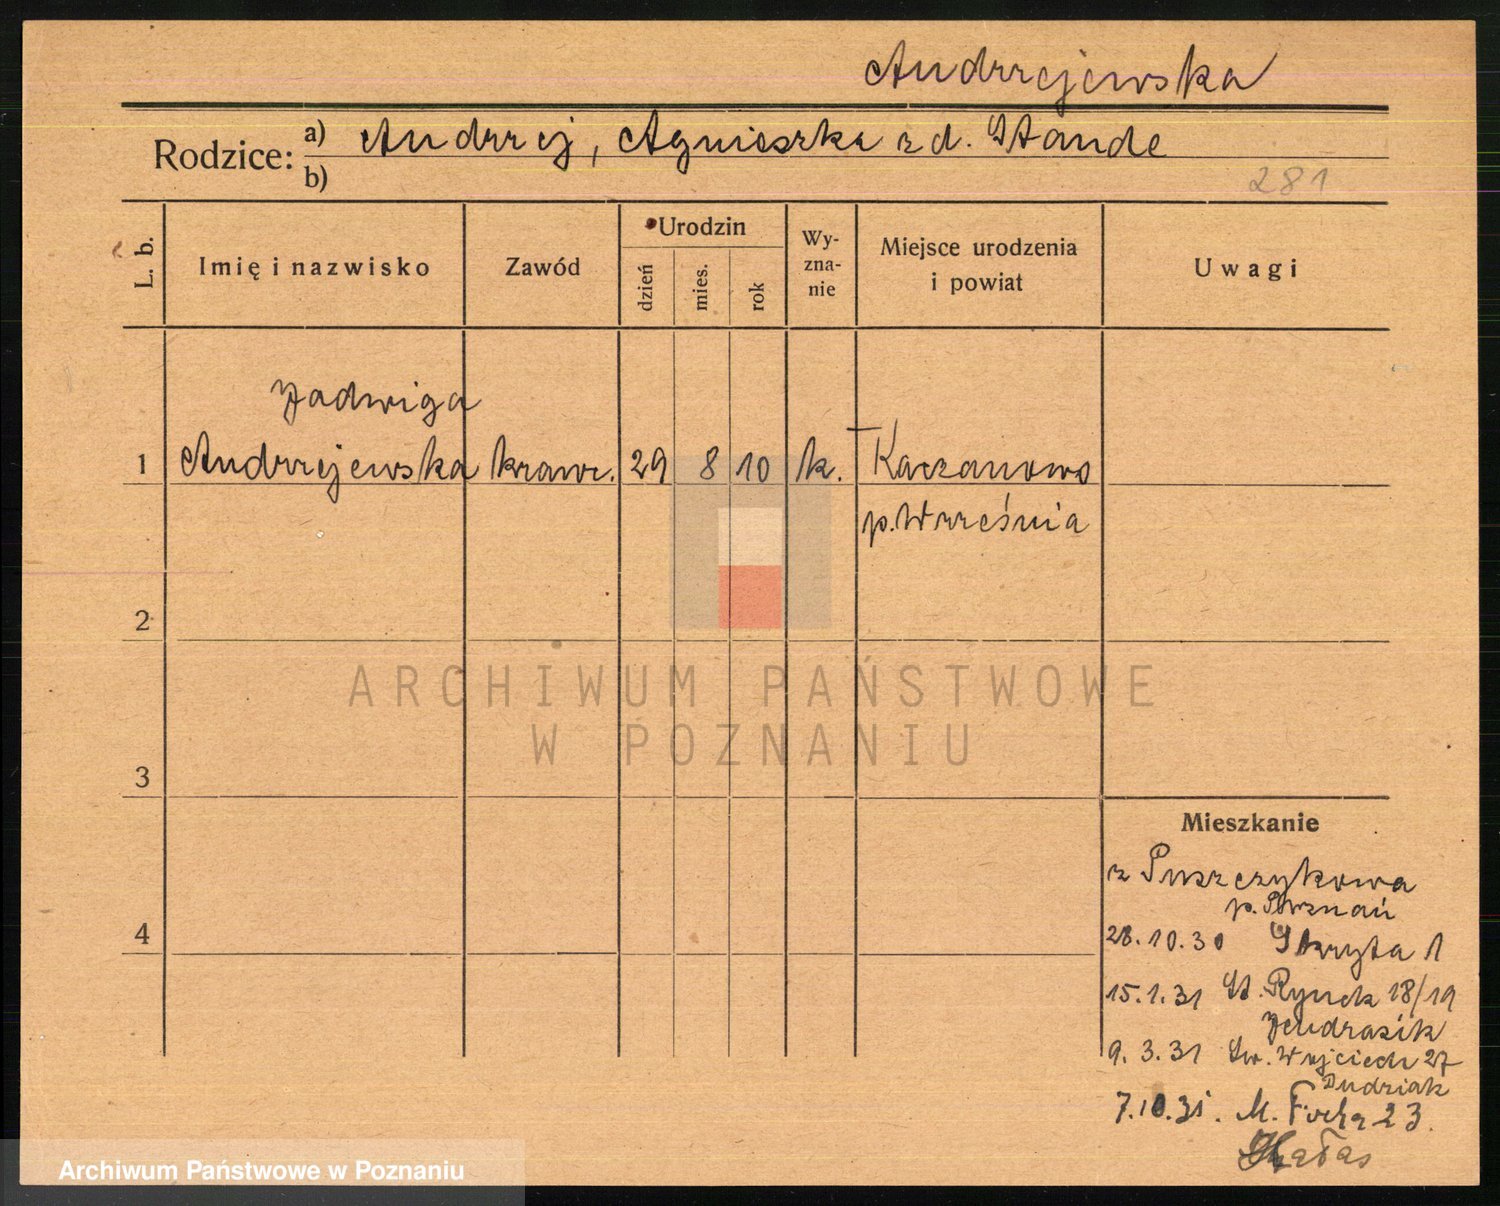 Andrzejewska
Rodzice: a) Andrzej, Agnieszka z d. Stande
b)
281
L. b.
Imię i nazwisko
Zawód
Urodzin
dzień
mies.
rok
Wy-
zna-
nie
Miejsce urodzenia
i powiat
Uwagi
Jadwiga
1 Andrzejewska krawc. 29 8 10 k. Kaczanowo
p. Września
2
3
4
ARCHIWUM PAŃSTWOWE
W POZNANIU
Mieszkanie
z Puszczykowa
p. Poznań
28.10.30 Skryta 1
15.1.31 St. Rynek 18/19
Jendrasik
9.3.31 Św. Wojciech 27
Dudziak
7.10.31. M. Focha 23.
Hałas
Archiwum Państwowe w Poznaniu